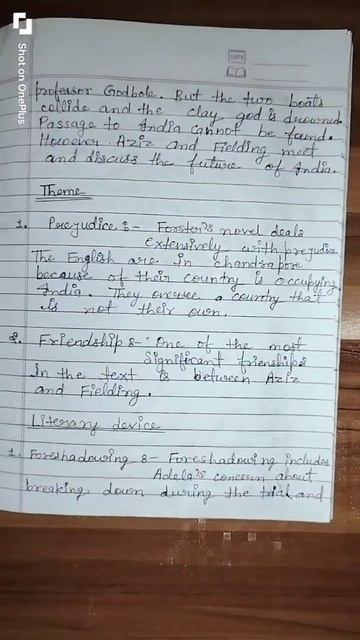 professor Godbole. But the two boats
collide and the clay god is drowned.
Passage to India cannot be found.
However Aziz and Fielding meet
and discuss the future of India.
Theme
1. Prejudice :- Forster's novel deals
extensively with prejudice
The English are in Chandrapore
because of their country is occupying
India. They oversee a country that
is not their own.
2. Friendship :- One of the most
significant frienships
in the text is between Aziz
and Fielding.
Literary device
1. Foreshadowing :- Foreshadowing includes
Adela's concern about
breaking down during the trial and
Shot on OnePlus
DATE